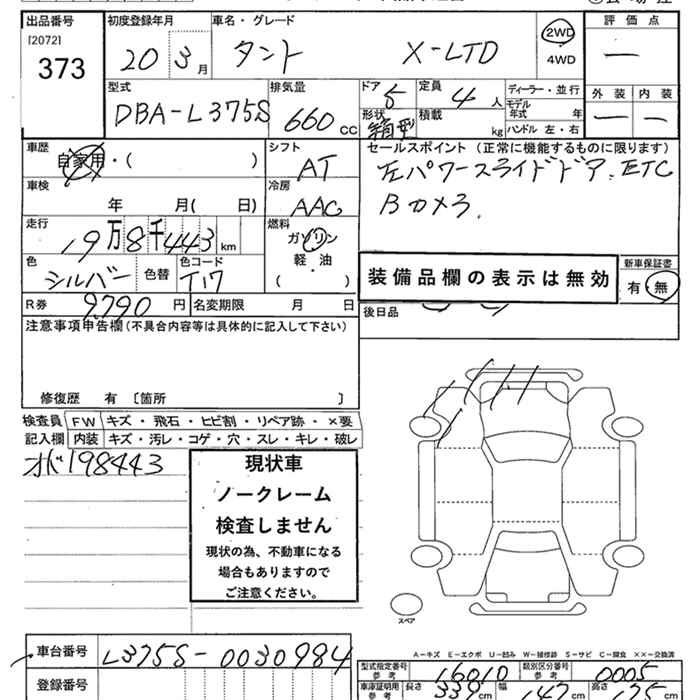 出品番号 初度登録年月 車名・グレード 評価点
[2072]
373
20 3月 タント X-LTD 2WD 4WD —
型式 排気量 ドア 5 定員 4人 ディーラー・並行 外装 内装
DBA-L375S 660cc 形状 箱型 積載 kg モデル年式 年 ハンドル 左・右 — —
車歴 シフト セールスポイント（正常に機能するものに限ります）
自家用・( ) AT 左パワースライドドア, ETC
車検 冷房 Bカメラ,
年 月( 日) AAC
走行 燃料
19万8千443km ガソリン
色 色替 色コード 軽・油 装備品欄の表示は無効 新車保証書
シルバー T17 ( ) 有・無
R券 9,790円 名変期限 月 日 後日品
注意事項申告欄(不具合内容等は具体的に記入して下さい)
修復歴 有〔箇所 〕
検査員 FW キズ・飛石・ヒビ割・リペア跡・×要
記入欄 内装 キズ・汚レ・コゲ・穴・スレ・キレ・破レ
198443
現状車
ノークレーム
検査しません
現状の為、不動車になる
場合もありますので
ご注意ください。
スペア
A－キズ E－エクボ U－凹み W－補修跡 S－サビ C－腐食 ××－交換済
車台番号 L375S-0030984 型式指定番号 参考 16010 類別区分番号 参考 0005
登録番号 車庫証明用 参考 長さ 339cm 幅 147cm 高さ 175cm